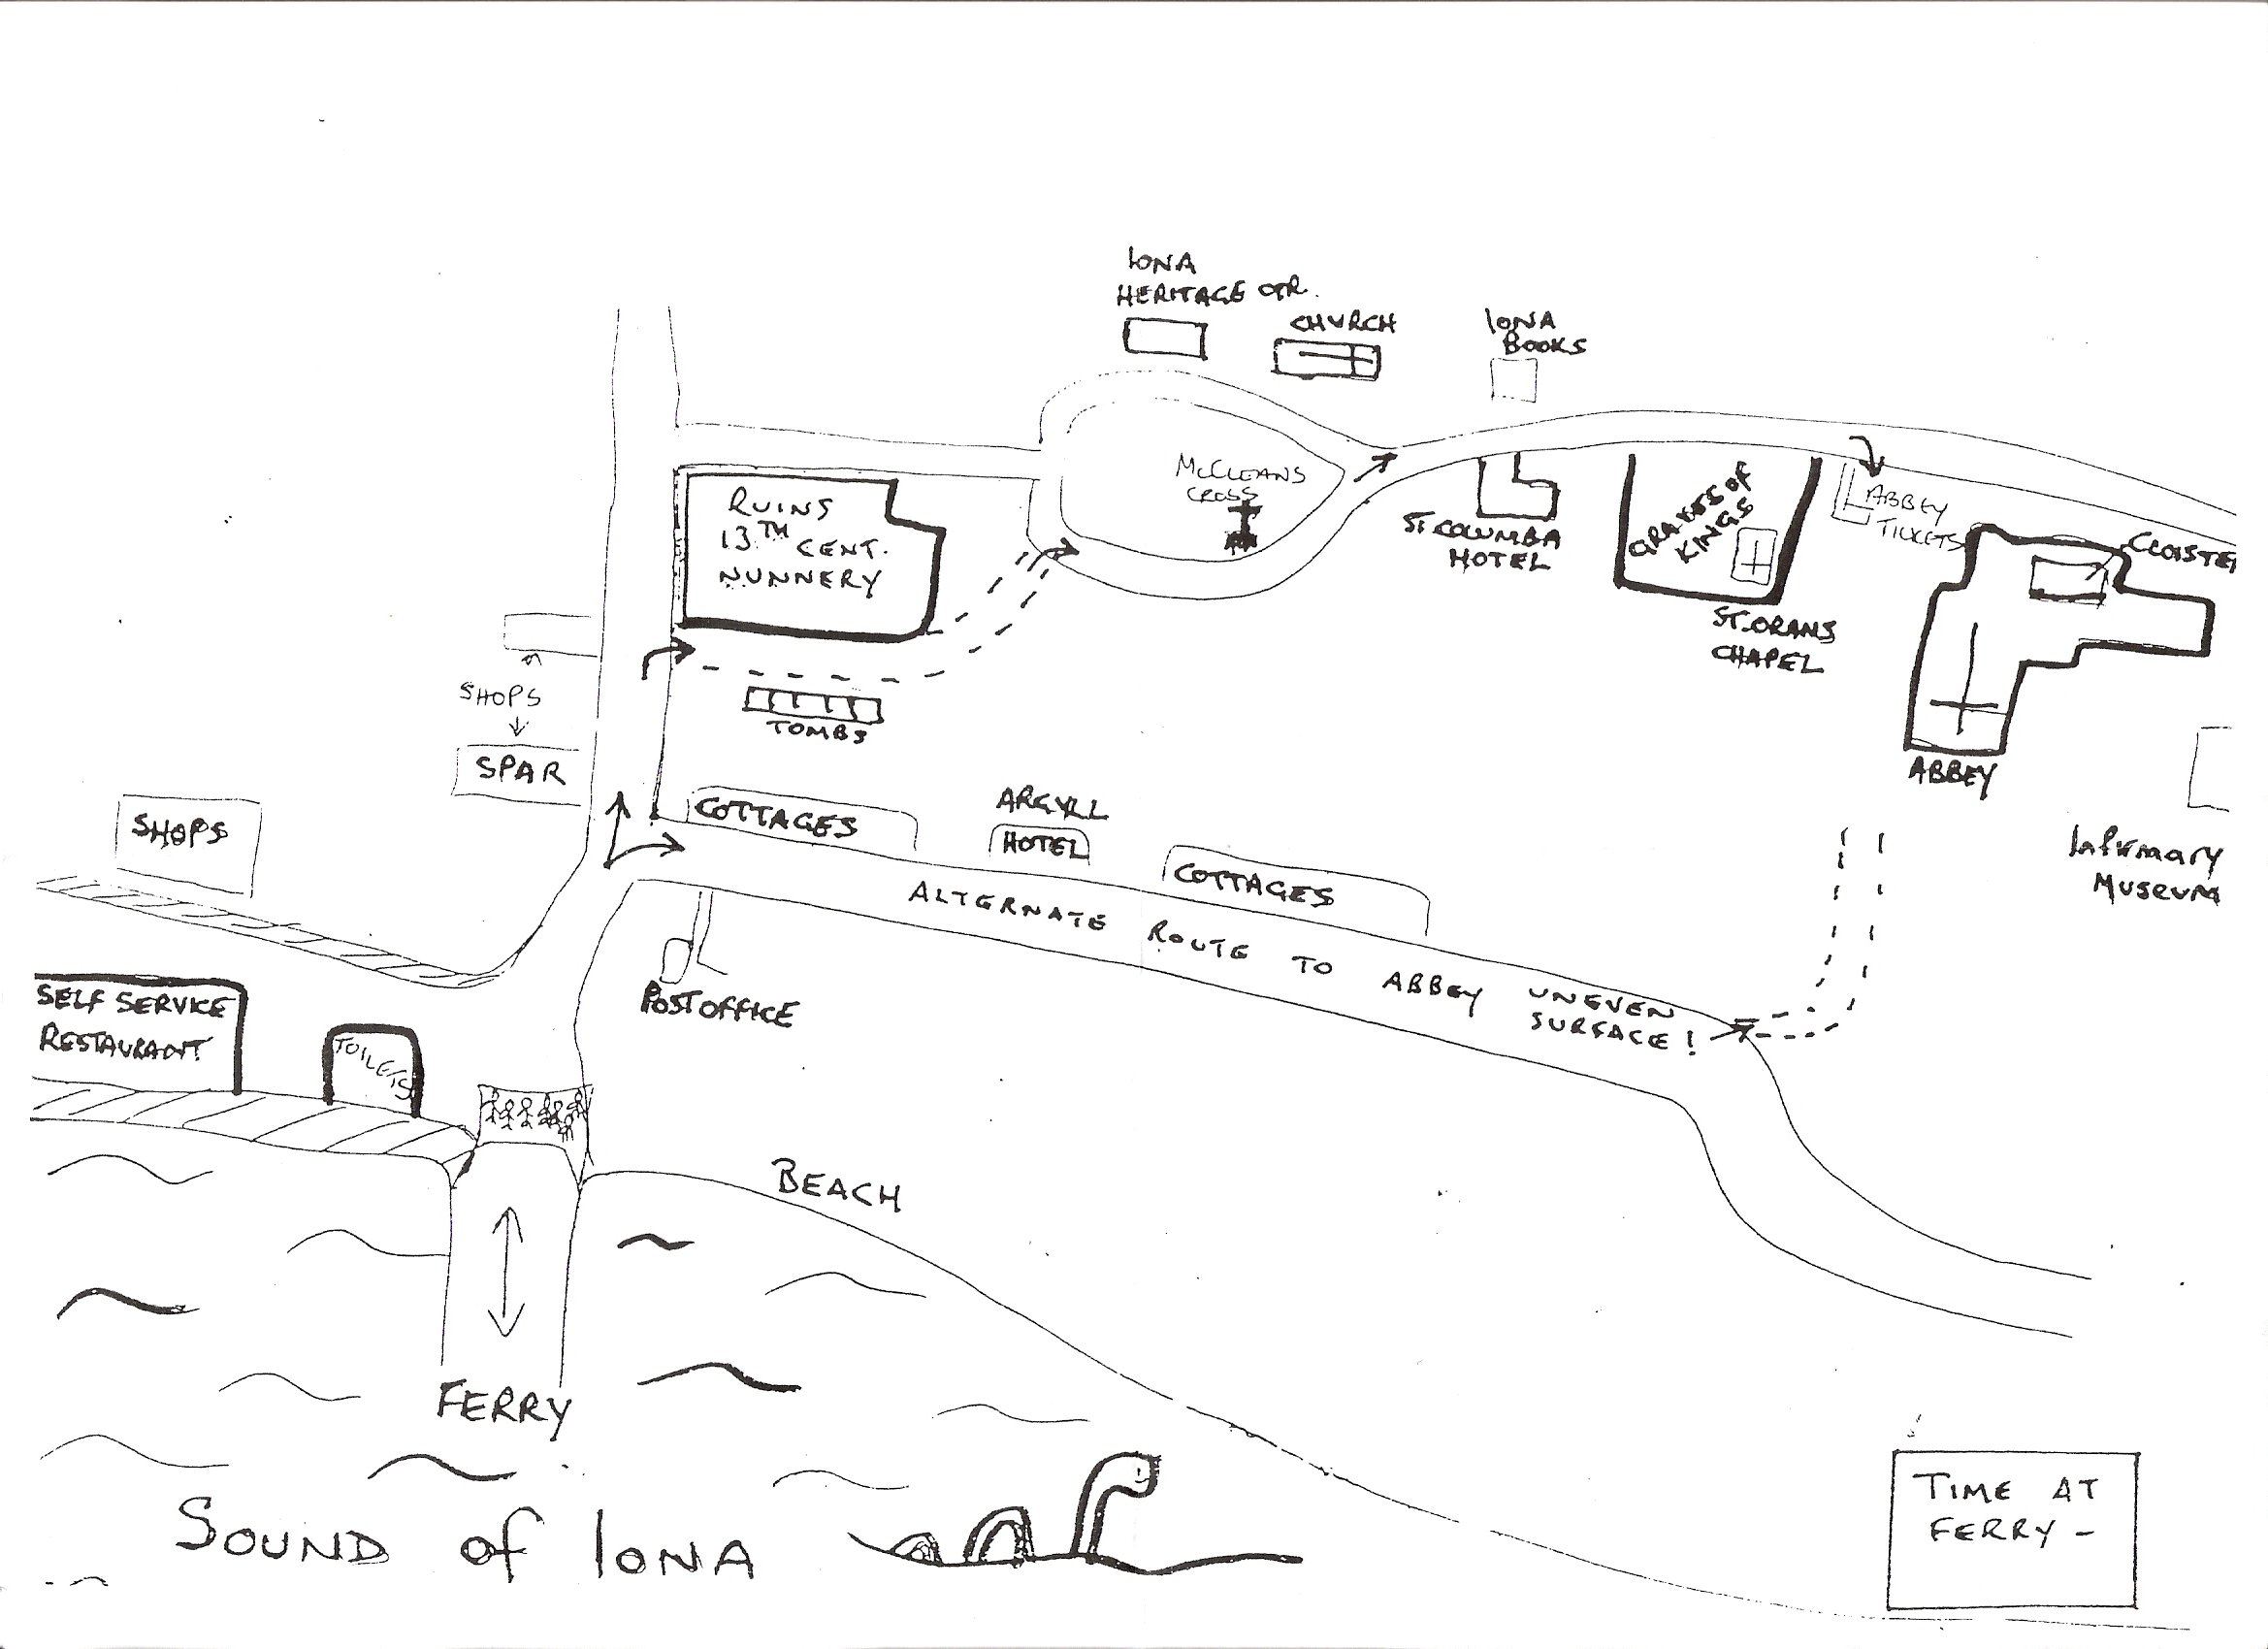 IONA
HERITAGE CTR.
CHURCH
IONA
BOOKS
McCLEANS
CROSS
RUINS
13TH CENT.
NUNNERY
ST. COLUMBA
HOTEL
GRAVES OF
KINGS
ABBEY
TICKETS
CLOISTE
ST. ORANS
CHAPEL
SHOPS
TOMBS
SPAR
ABBEY
SHOPS
COTTAGES
ARGYLL
HOTEL
COTTAGES
Infirmary
Museum
ALTERNATE ROUTE TO ABBEY UNEVEN
SURFACE!
POST OFFICE
SELF SERVICE
RESTAURANT
TOILETS
BEACH
FERRY
TIME AT
FERRY -
SOUND of IONA